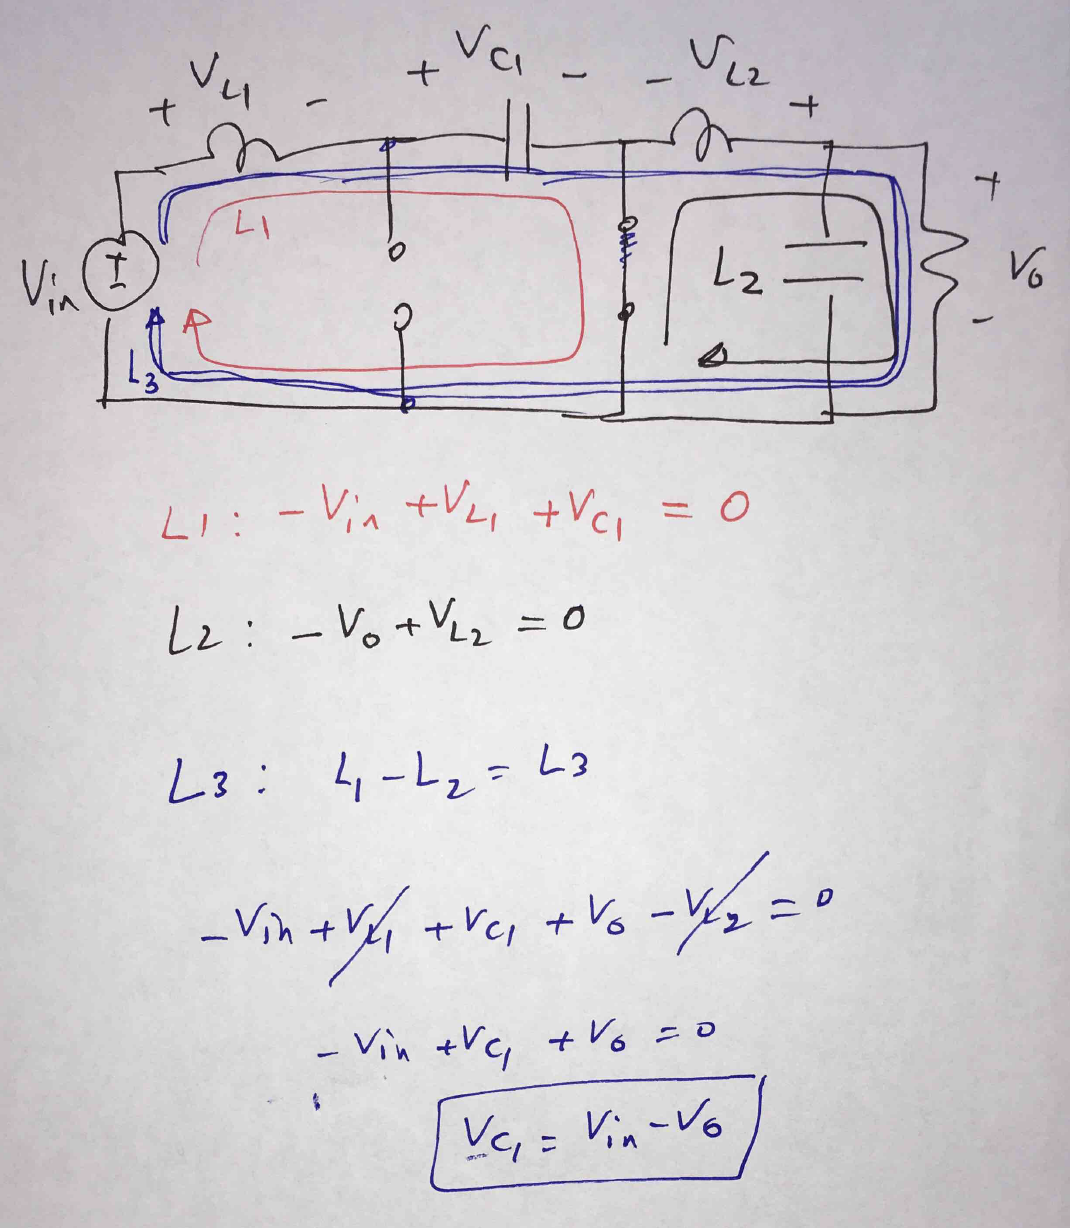 + VL1 - + VC1 - - VL2 +
L1
+
Vin I L2 Vo
-
L3
L1: - Vin + VL1 + VC1 = 0
L2: - Vo + VL2 = 0
L3: L1 - L2 = L3
- Vin + VL1 + VC1 + Vo - VL2 = 0
- Vin + VC1 + Vo = 0
VC1 = Vin - Vo